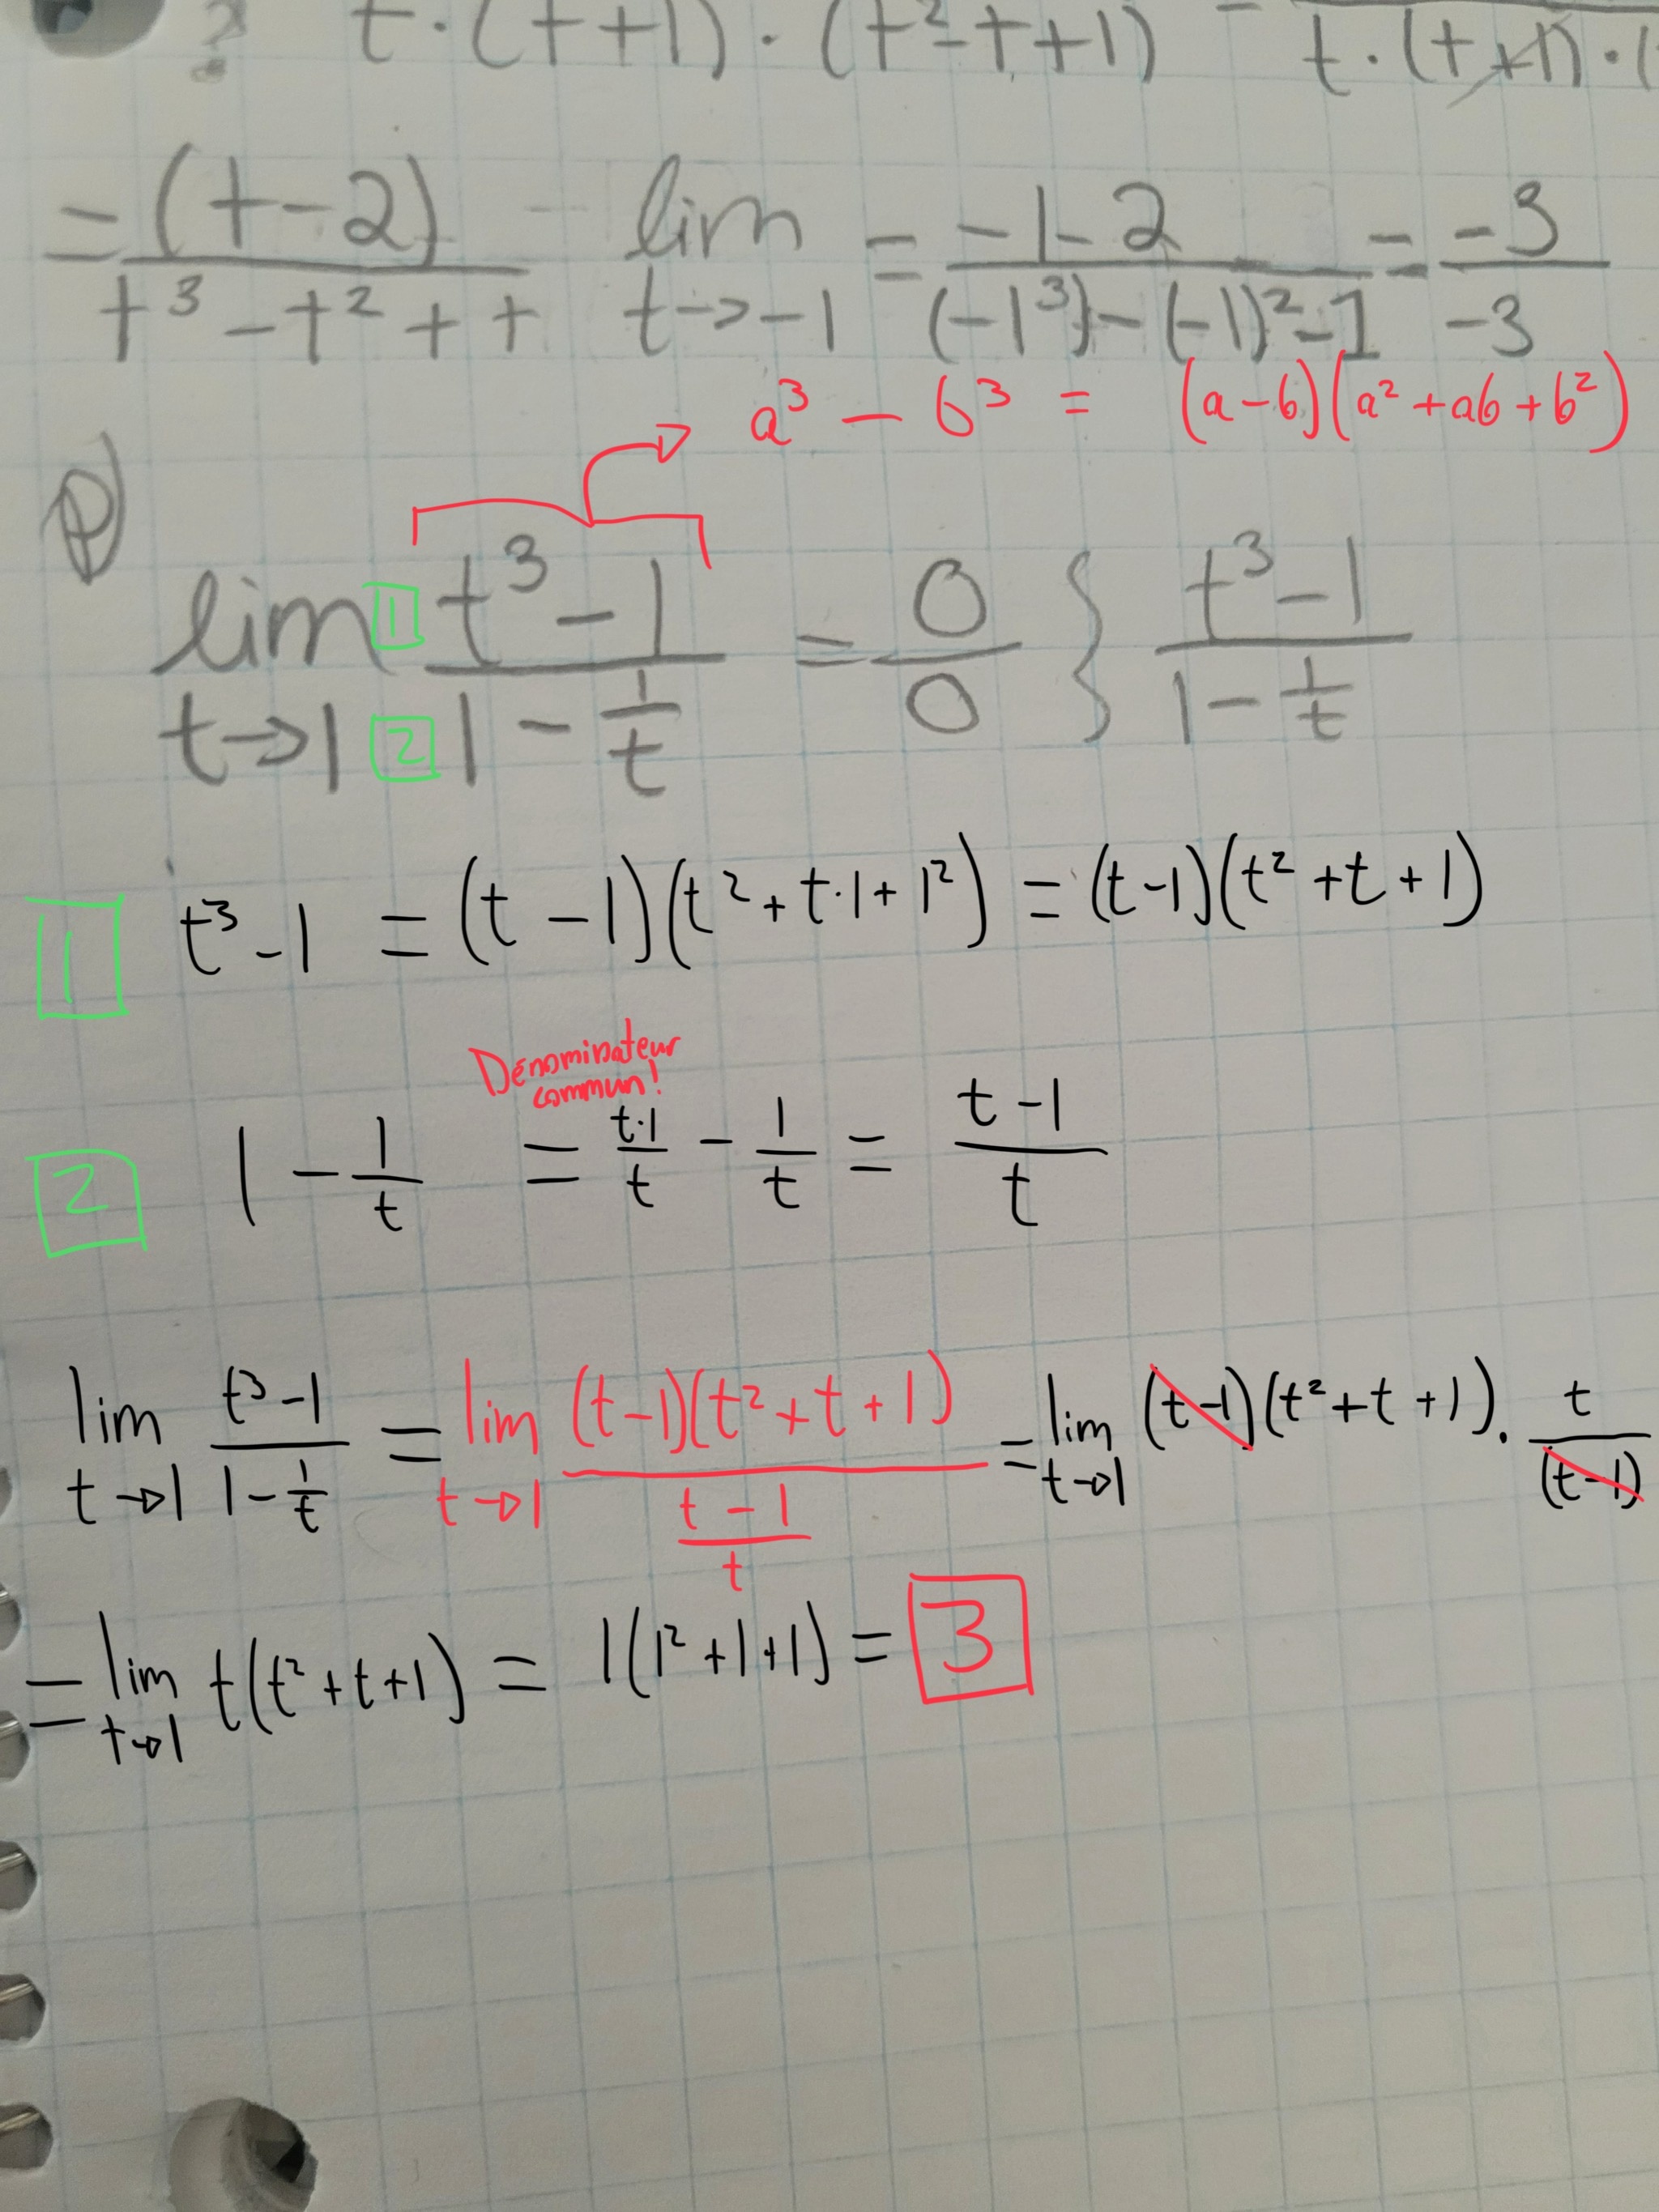 t·(t+1)·(t²-t+1) = t·(t+1)·(
= (t-2) / t³-t²+t lim t→-1 = -1-2 / (-1³)-(-1)²-1 = -3 / -3
a³ - b³ = (a-b)(a²+ab+b²)
lim t→1 [1] t³-1 / [2] 1 - 1/t = 0/0 } t³-1 / 1 - 1/t
[1] t³-1 = (t-1)(t²+t·1+1²) = (t-1)(t²+t+1)
Dénominateur
commun!
[2] 1 - 1/t = t·1/t - 1/t = t-1 / t
lim t→1 t³-1 / 1 - 1/t = lim t→1 (t-1)(t²+t+1) / (t-1 / t) = lim t→1 (t-1)(t²+t+1) · t / (t-1)
= lim t→1 t(t²+t+1) = 1(1²+1+1) = 3